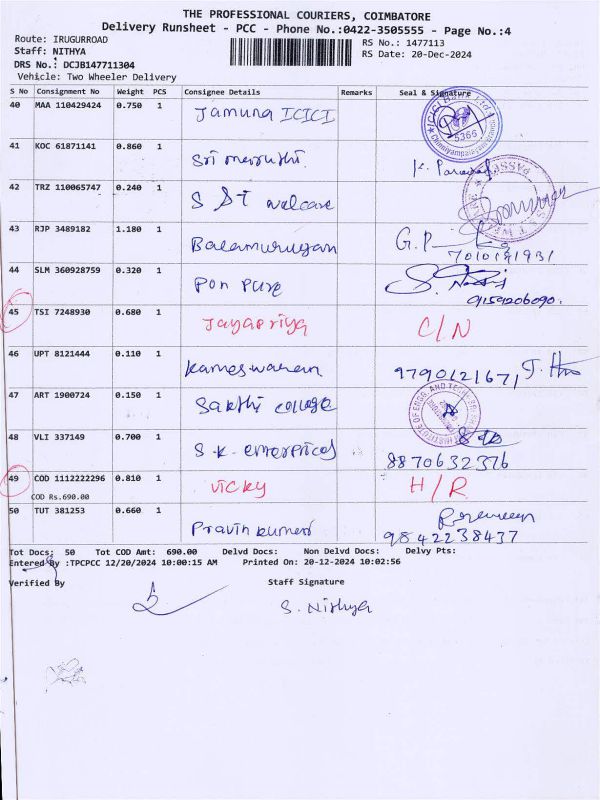 THE PROFESSIONAL COURIERS, COIMBATORE
Delivery Runsheet - PCC - Phone No.:0422-3505555 - Page No.:4
Route: IRUGURROAD RS No.: 1477113
Staff: NITHYA RS Date: 20-Dec-2024
DRS No.: DCJB147711304
Vehicle: Two Wheeler Delivery
S No Consignment No Weight PCS Consignee Details Remarks Seal & Signature
40 MAA 110429424 0.750 1 Jamuna ICICI
5366
41 KOC 61871141 0.860 1 Sri
42 TRZ 110065747 0.240 1 S S T welcare
43 RJP 3489182 1.180 1 Balamurugan G.P
44 SLM 360928759 0.320 1 Pon Pure
9159206090.
45 TSI 7248930 0.680 1 Jayapriya C/N
46 UPT 8121444 0.110 1 Kameswaran 9790121671
47 ART 1900724 0.150 1 Sakthi college
48 VLI 337149 0.700 1 S.K. enterprices
8870632376
49 COD 1112222296 0.810 1 Vicky H/R
COD Rs.690.00
50 TUT 381253 0.660 1 Pravin kumar
9842238437
Tot Docs: 50 Tot COD Amt: 690.00 Delvd Docs: Non Delvd Docs: Delvy Pts:
Entered By :TPCPCC 12/20/2024 10:00:15 AM Printed On: 20-12-2024 10:02:56
Verified By Staff Signature
S. Nithya